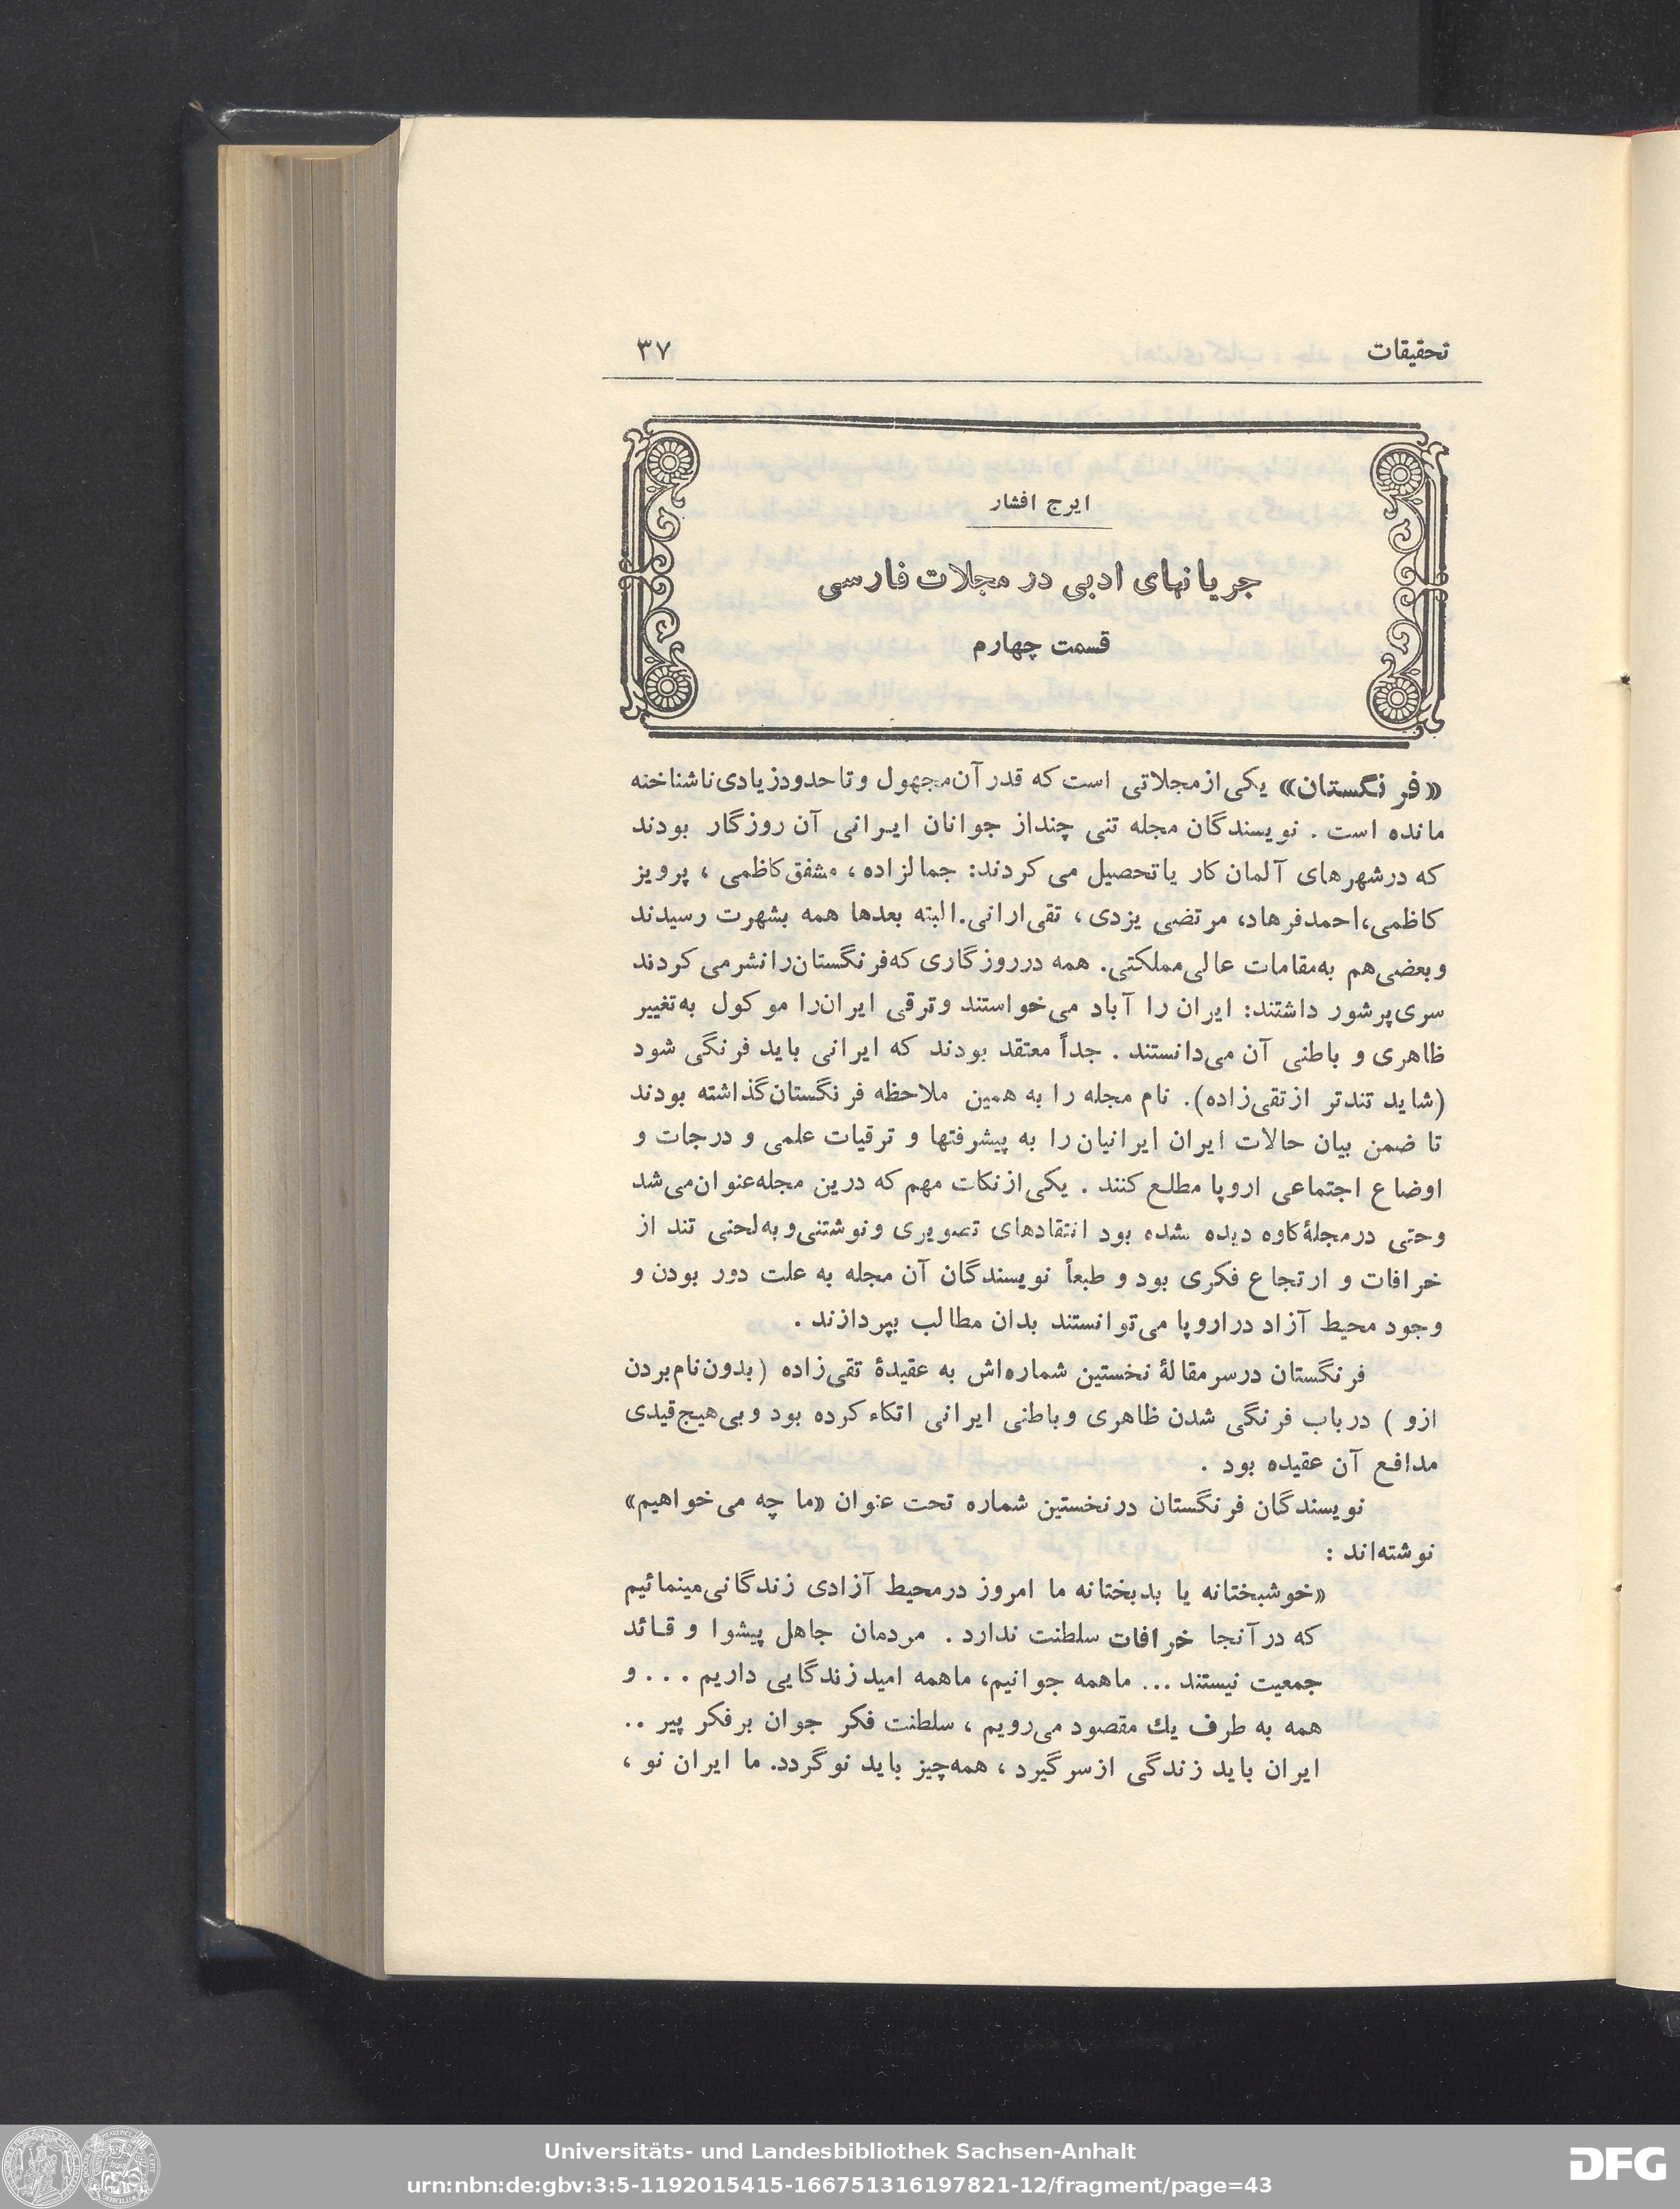 تحقیقات
۳۷
ایرج افشار
جریانهای ادبی در مجلات فارسی
قسمت چهارم
«فرنگستان» یکی از مجلاتی است که قدر آن مجهول و تا حدود زیادی ناشناخته
مانده است . نویسندگان مجله تنی چند از جوانان ایرانی آن روزگار بودند
که در شهرهای آلمان کار یا تحصیل می کردند: جمالزاده ، مشفق کاظمی ، پرویز
کاظمی، احمد فرهاد، مرتضی یزدی ، تقی ارانی. البته بعدها همه بشهرت رسیدند
و بعضی هم به مقامات عالی مملکتی. همه در روزگاری که فرنگستان را نشر می کردند
سری پرشور داشتند: ایران را آباد می خواستند و ترقی ایران را موکول به تغییر
ظاهری و باطنی آن می دانستند . جداً معتقد بودند که ایرانی باید فرنگی شود
(شاید تندتر از تقی زاده). نام مجله را به همین ملاحظه فرنگستان گذاشته بودند
تا ضمن بیان حالات ایران ایرانیان را به پیشرفتها و ترقیات علمی و درجات و
اوضاع اجتماعی اروپا مطلع کنند . یکی از نکات مهم که درین مجله عنوان می شد
و حتی در مجلهٔ کاوه دیده نشده بود انتقادهای تصویری و نوشتنی و به لحنی تند از
خرافات و ارتجاع فکری بود و طبعاً نویسندگان آن مجله به علت دور بودن و
وجود محیط آزاد در اروپا می توانستند بدان مطالب بپردازند .
فرنگستان در سر مقالهٔ نخستین شماره اش به عقیدهٔ تقی زاده ( بدون نام بردن
ازو ) در باب فرنگی شدن ظاهری و باطنی ایرانی اتکاء کرده بود و بی هیچ قیدی
مدافع آن عقیده بود .
نویسندگان فرنگستان در نخستین شماره تحت عنوان «ما چه می خواهیم»
نوشته اند :
«خوشبختانه یا بدبختانه ما امروز در محیط آزادی زندگانی مینمائیم
که در آنجا خرافات سلطنت ندارد . مردمان جاهل پیشوا و قائد
جمعیت نیستند ... ما همه جوانیم، ما همه امید زندگایی داریم . . . و
همه به طرف یك مقصود می رویم ، سلطنت فکر جوان بر فکر پیر . .
ایران باید زندگی از سر گیرد ، همه چیز باید نو گردد. ما ایران نو ،
Universitäts- und Landesbibliothek Sachsen-Anhalt
urn:nbn:de:gbv:3:5-1192015415-166751316197821-12/fragment/page=43
DFG